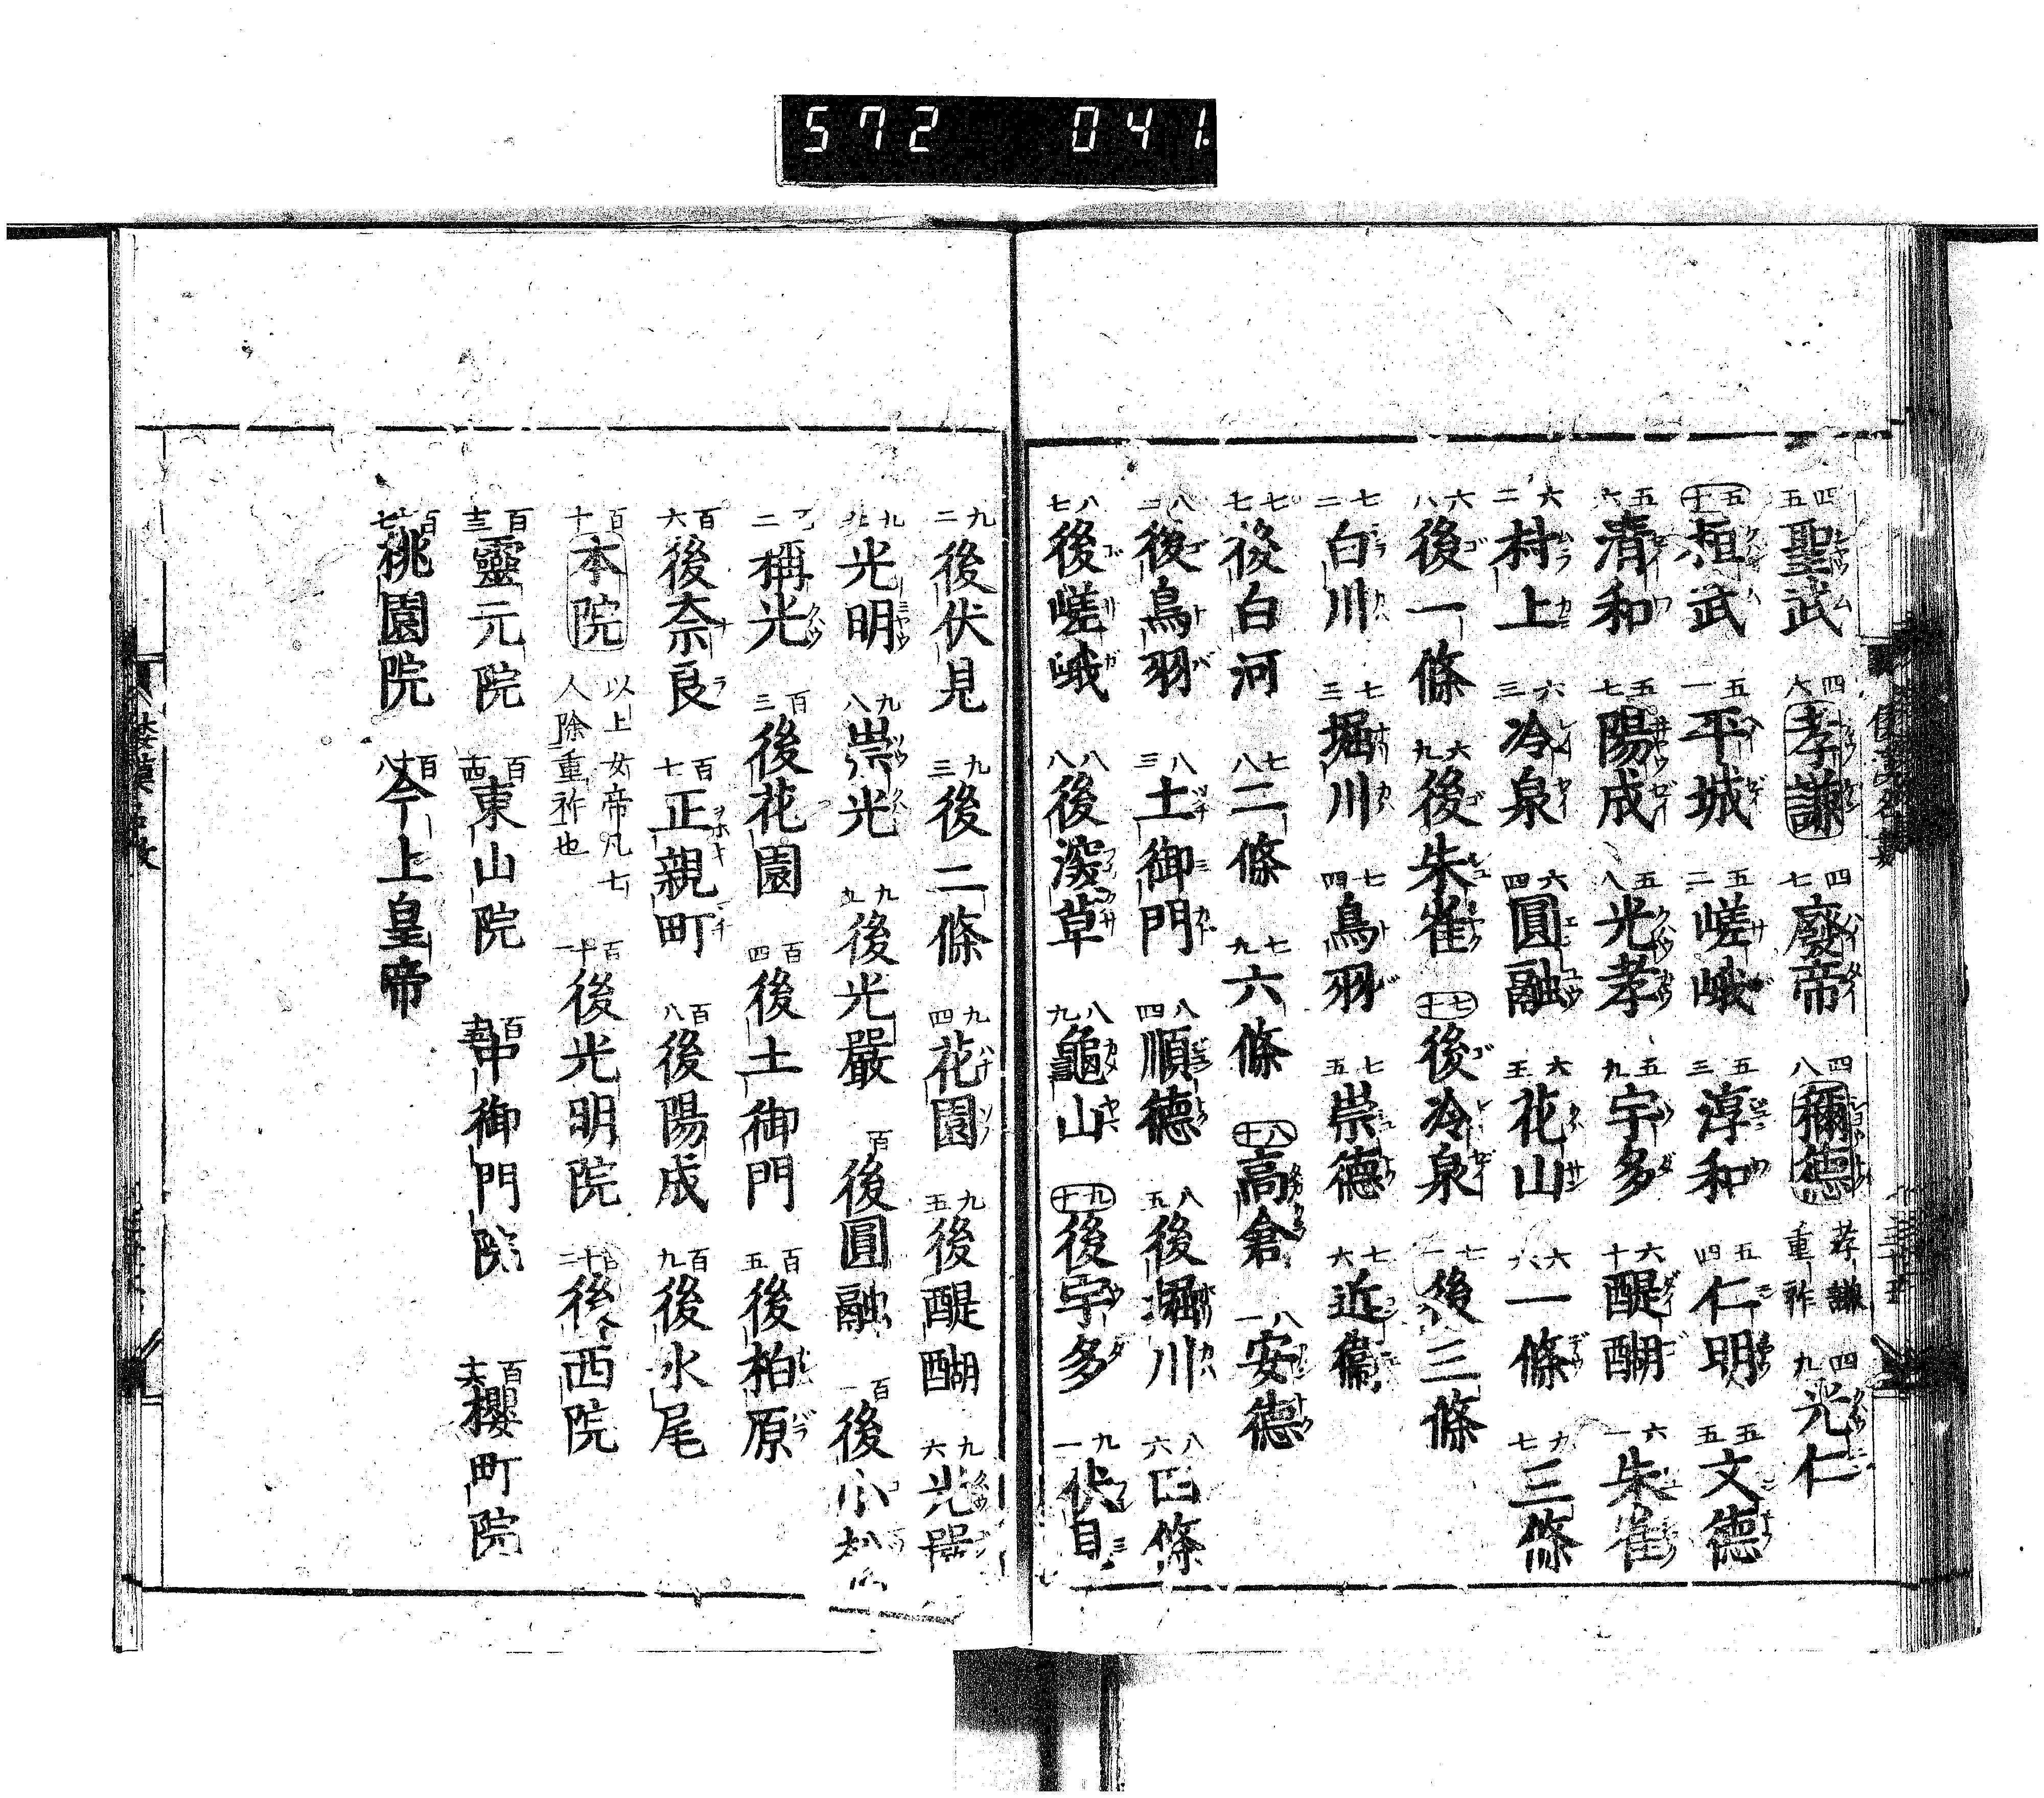 572 041
四五聖武 四六孝謙 四七廢帝 四八稱德 孝謙重祚 四九光仁
五十桓武 五一平城 五二嵯峨 五三淳和 五四仁明 五五文德
五六清和 五七陽成 五八光孝 五九宇多 六十醍醐 六一朱雀
六二村上 六三冷泉 六四圓融 六五花山 六六一條 六七三條
六八後一條 六九後朱雀 七十後冷泉 七一後三條
七二白川 七三堀川 七四鳥羽 七五崇德 七六近衞
七七後白河 七八二條 七九六條 八十高倉 八一安德
八二後鳥羽 八三土御門 八四順德 八五後堀川 八六四條
八七後嵯峨 八八後深草 八九龜山 九十後宇多 九一伏見
九二後伏見 九三後二條 九四花園 九五後醍醐 九六光嚴
光明 九八崇光 九九後光嚴 百後圓融 百一後小松
稱光 百三後花園 百四後土御門 百五後柏原
百六後奈良 百七正親町 百八後陽成 百九後水尾
百十本院 以上女帝凡七人除重祚也 百十一後光明院 百十二後西院
百十三靈元院 百十四東山院 百十五中御門院 百十六櫻町院
百十七桃園院 百十八今上皇帝